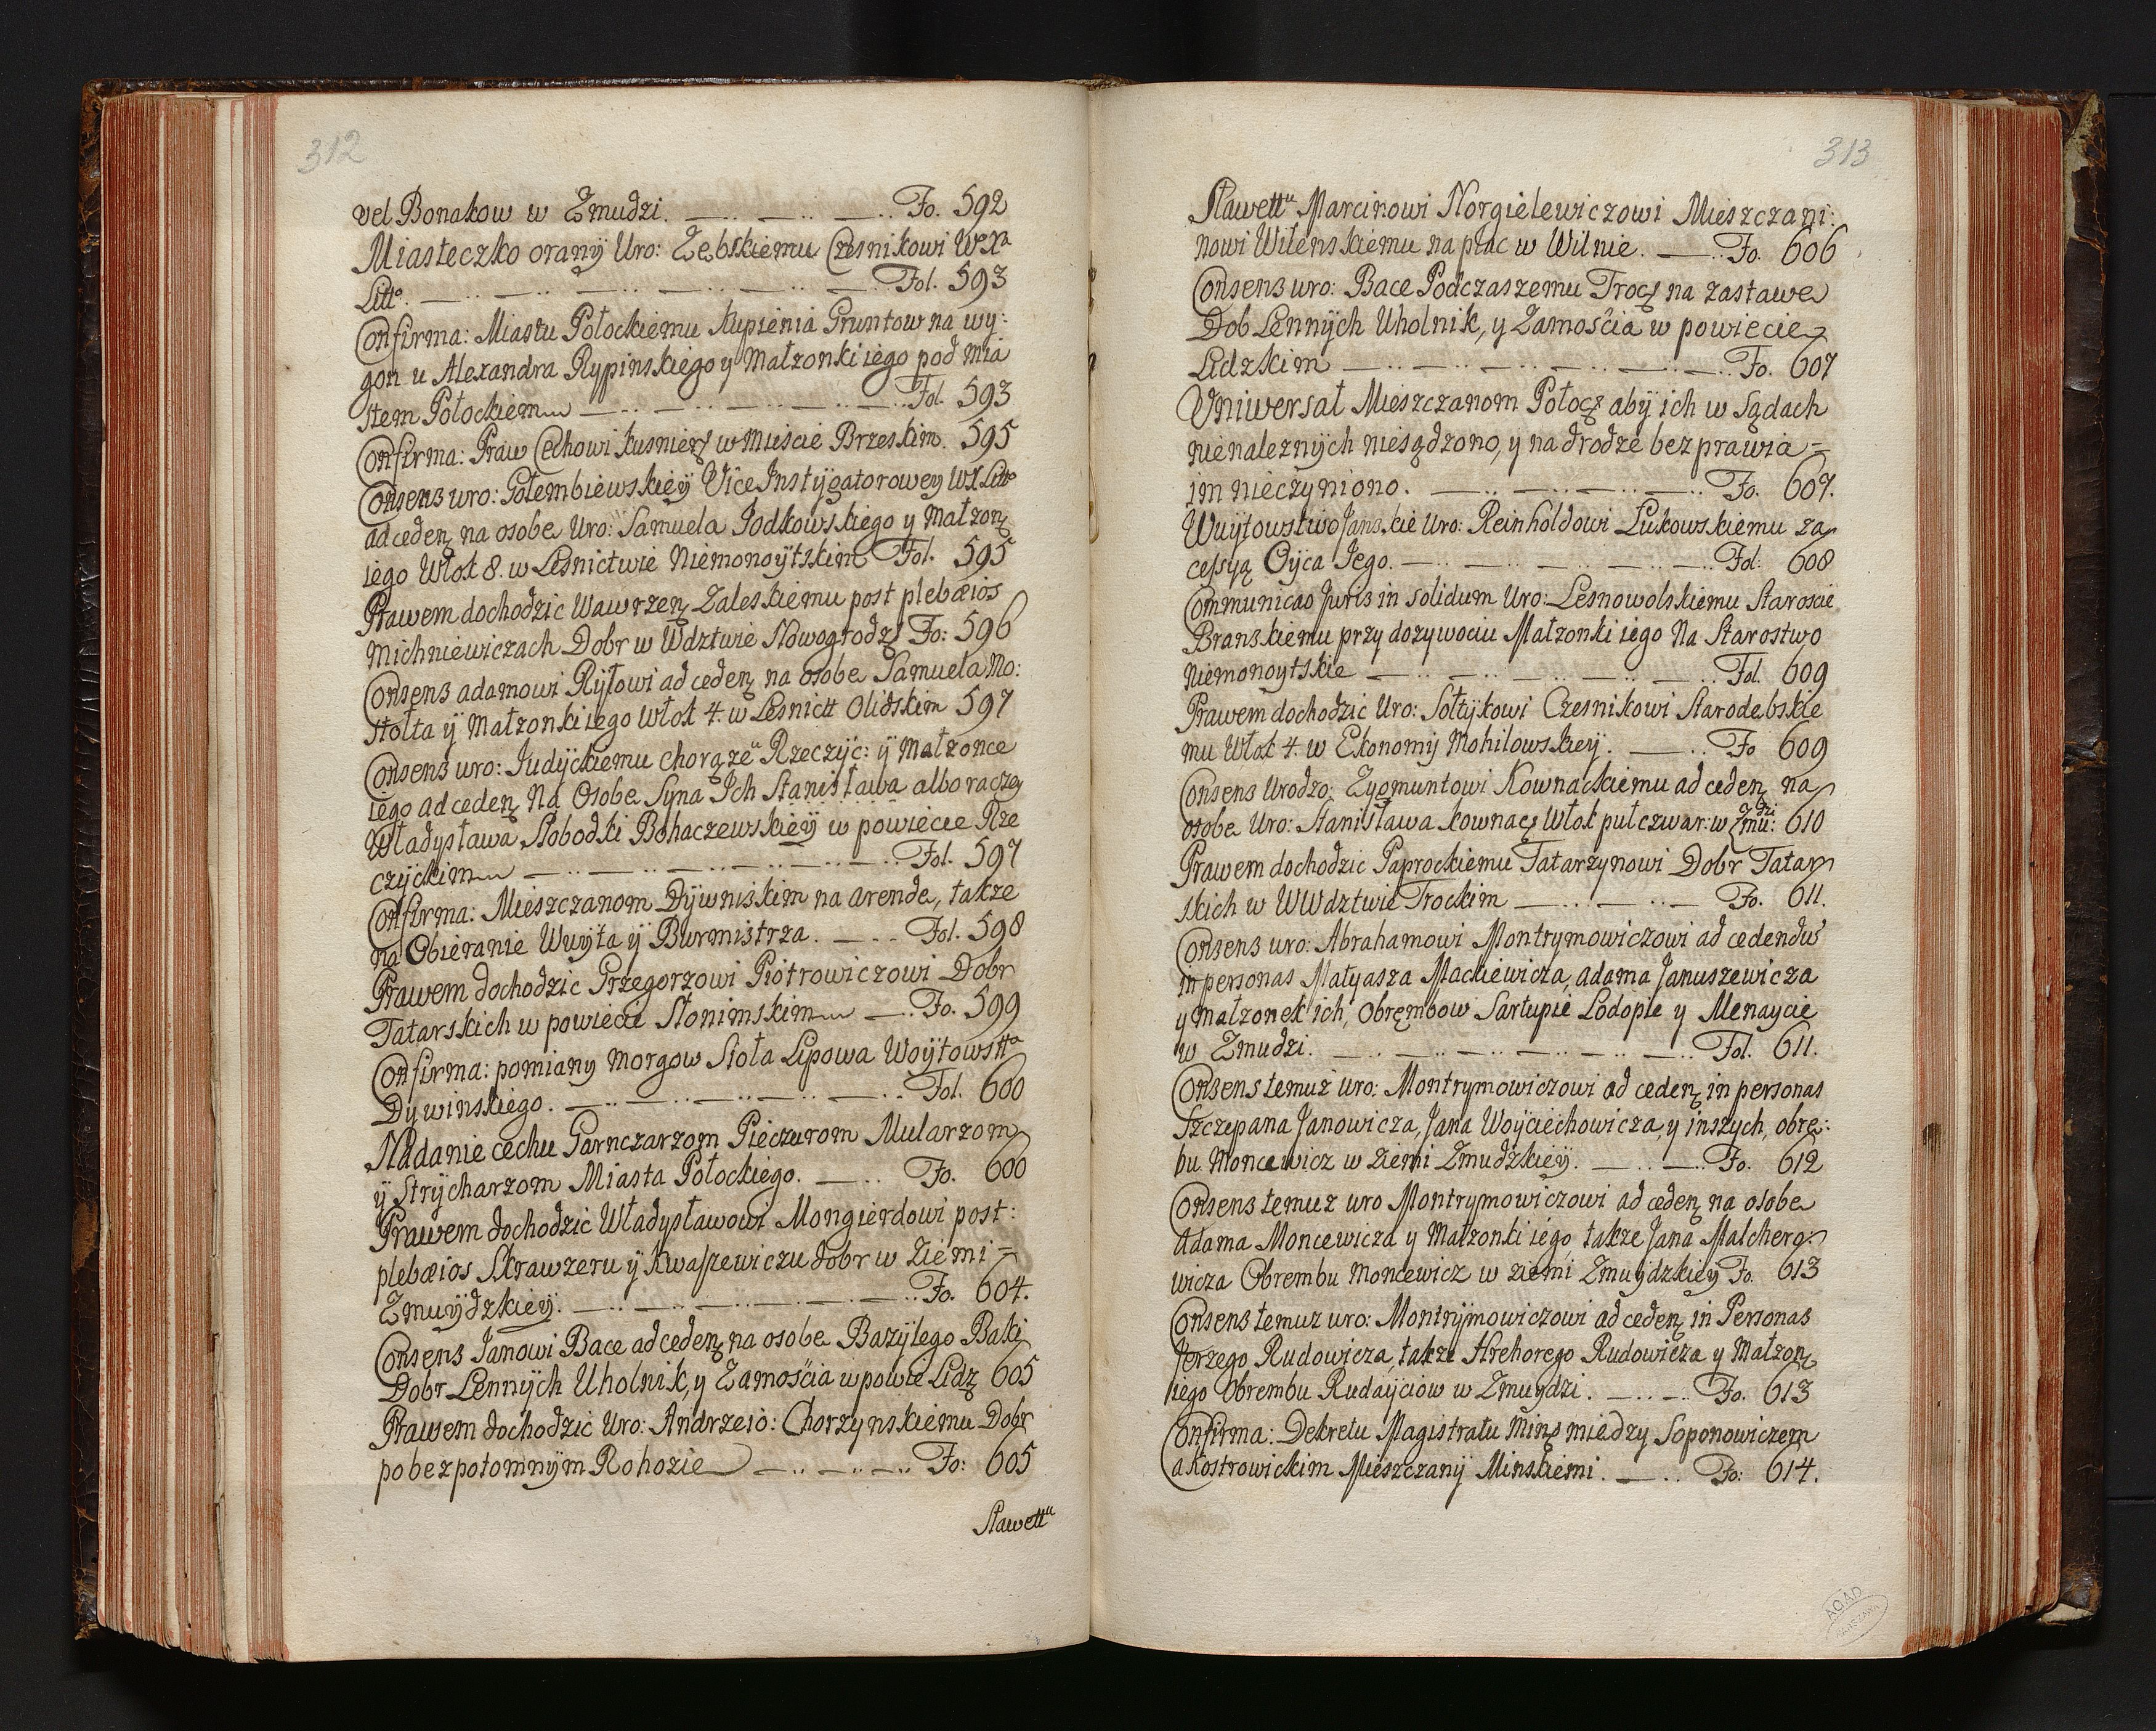 312
vel Bonakow w Zmudzi. — .. — .. — .. Fo. 592
Miasteczko orany Uro: Zębskiemu Czesnikowi WXa
Litto. — .. — .. — .. — .. — .. Fol. 593
Confirma: Miastu Połockiemu kupienia Gruntow na wy:
gon u Alexandra Rypinskiego y Małzonki iego pod Mia
stem Połockiem — .. — .. — .. — .. Fol. 593
Confirma: Praw Cechowi kusnierz w Miescie Brzeskim. 595
Consens uro: Gołembiewskiey Vice Instygatorowey WX Litto
ad ceden na osobe Uro: Samuela Jodkowskiego y Małzon
iego Włok 8. w Lesnictwie Niemonoytskim Fol. 595
Prawem dochodzic Wawrzen Zaleskiemu post plebæios
Michniewiczach Dobr w Wdztwie Nowogrodz Fo: 596
Consens adamowi Ryłowi ad ceden na osobe Samuela Mo:
stołta y Małzonki iego Włok 4. w Lesnictt Olidskim 597
Consens uro: Judyckiemu chorąze u Rzeczyc: y Małzonce
iego ad ceden Na Osobe Syna Ich Stanisława albo raczey
Władysława Słobodki Bohaczewskiey w powiecie Rze
czyckim — .. — .. — .. — .. Fol. 597
Confirma: Mieszczanom Dywinskim na arende, takze
na Obieranie Wuyta y Burmistrza. — .. Fol. 598
Prawem dochodzic Grzegorzowi Piotrowiczowi Dobr
Tatarskich w powiecie Słonimskim — .. Fo. 599
Confirma: pomiany morgow Sioła Lipowa Woytowstta
Dywinskiego. — .. — .. — .. — .. Fol. 600
Nadanie cechu Garnczarzom Pieczurom Mularzom
y Strycharzom Miasta Połockiego. — .. Fo. 600
Prawem dochodzic Władysławowi Mongierdowi post:
plebæios Skrawzeru y Kwaszewiczu dobr w Ziemi =
Zmuydzkiey. — .. — .. — .. — .. Fo. 604.
Consens Janowi Bace ad ceden na osobe Bazylego Baki
Dobr Lennych Uholnik, y Zamoscia w powie Lidz 605
Prawem dochodzic Uro: Andrzeio: Chorzynskiemu Dobr
po bezpotomnym Rohozie — .. — .. Fo: 605
Sławettu
313
Sławettu Marcinowi Norgielewiczowi Mieszczani:
nowi Wilenskiemu na płac w Wilnie. — .. Fo. 606
Consens uro: Bace Podczaszemu Troc na zastawe
Dob Lennych Uholnik, y Zamoscia w powiecie
Lidzkim — .. — .. — .. — .. — .. Fo. 607
Vniwersał Mieszczanom Połoc aby ich w Sądach
nienaleznych niesądzono, y na drodze bezprawia =
im nieczyniono. — .. — .. — .. Fo. 607.
Wuytowstwo Janskie Uro: Reinholdowi Lukowskiemu za
cessyą Oyca Jego. — .. — .. — .. Fol: 608
Communicao Juris in solidum Uro: Lesnowolskiemu Staroscie
Branskiemu przy dozywociu Małzonki iego Na Starostwo
Niemonoytskie — .. — .. — .. — .. Fol. 609
Prawem dochodzic Uro: Sołtykowi Czesnikowi Starodebskie
mu Włok 4. w Ekonomij Mohilowskiey. — .. Fo 609
Consens Urodzo: Zygmuntowi Kownackiemu ad ceden na
osobe Uro: Stanisława kownac Włok puł czwar: w Zmu:dzi 610
Prawem dochodzic Paprockiemu Tatarzynowi Dobr Tatar
skich w WWdztwie Trockim — .. — .. Fo. 611.
Consens uro: Abrahamowi Montrymowiczowi ad cedendus
in personas Matyasza Mackiewicza, adama Januszewicza
y małzonek ich, Obrębow Sartupie Lodopie y Menaycie
w Zmudzi. — .. — .. — .. — .. Fol. 611.
Consens temuz uro: Montrymowiczowi ad ceden in personas
Szczepana Janowicza, Jana Woyciechowicza, y inszych, obre:
bu Moncewicz w Ziemi Zmudzkiey. — .. Fo. 612
Consens temuz uro Montrymowiczowi ad ceden na osobe
Adama Moncewicza y Małzonki iego, takze Jana Malchero:
wicza Obrembu Moncewicz w ziemi Zmuydzkiey Fo. 613
Consens temuz uro: Montrymowiczowi ad ceden in Personas
Jerzego Rudowicza, takze Hrehorego Rudowicza y Małzon
iego Obrembu Rudayciow w Zmuydzi. — .. Fo. 613
Confirma: Dekretu Magistratu Mins miedzy Soponowiczem
a Kostrowickim Mieszczany Minskiemi. — .. Fo: 614.
AGAD
WARSZAWA